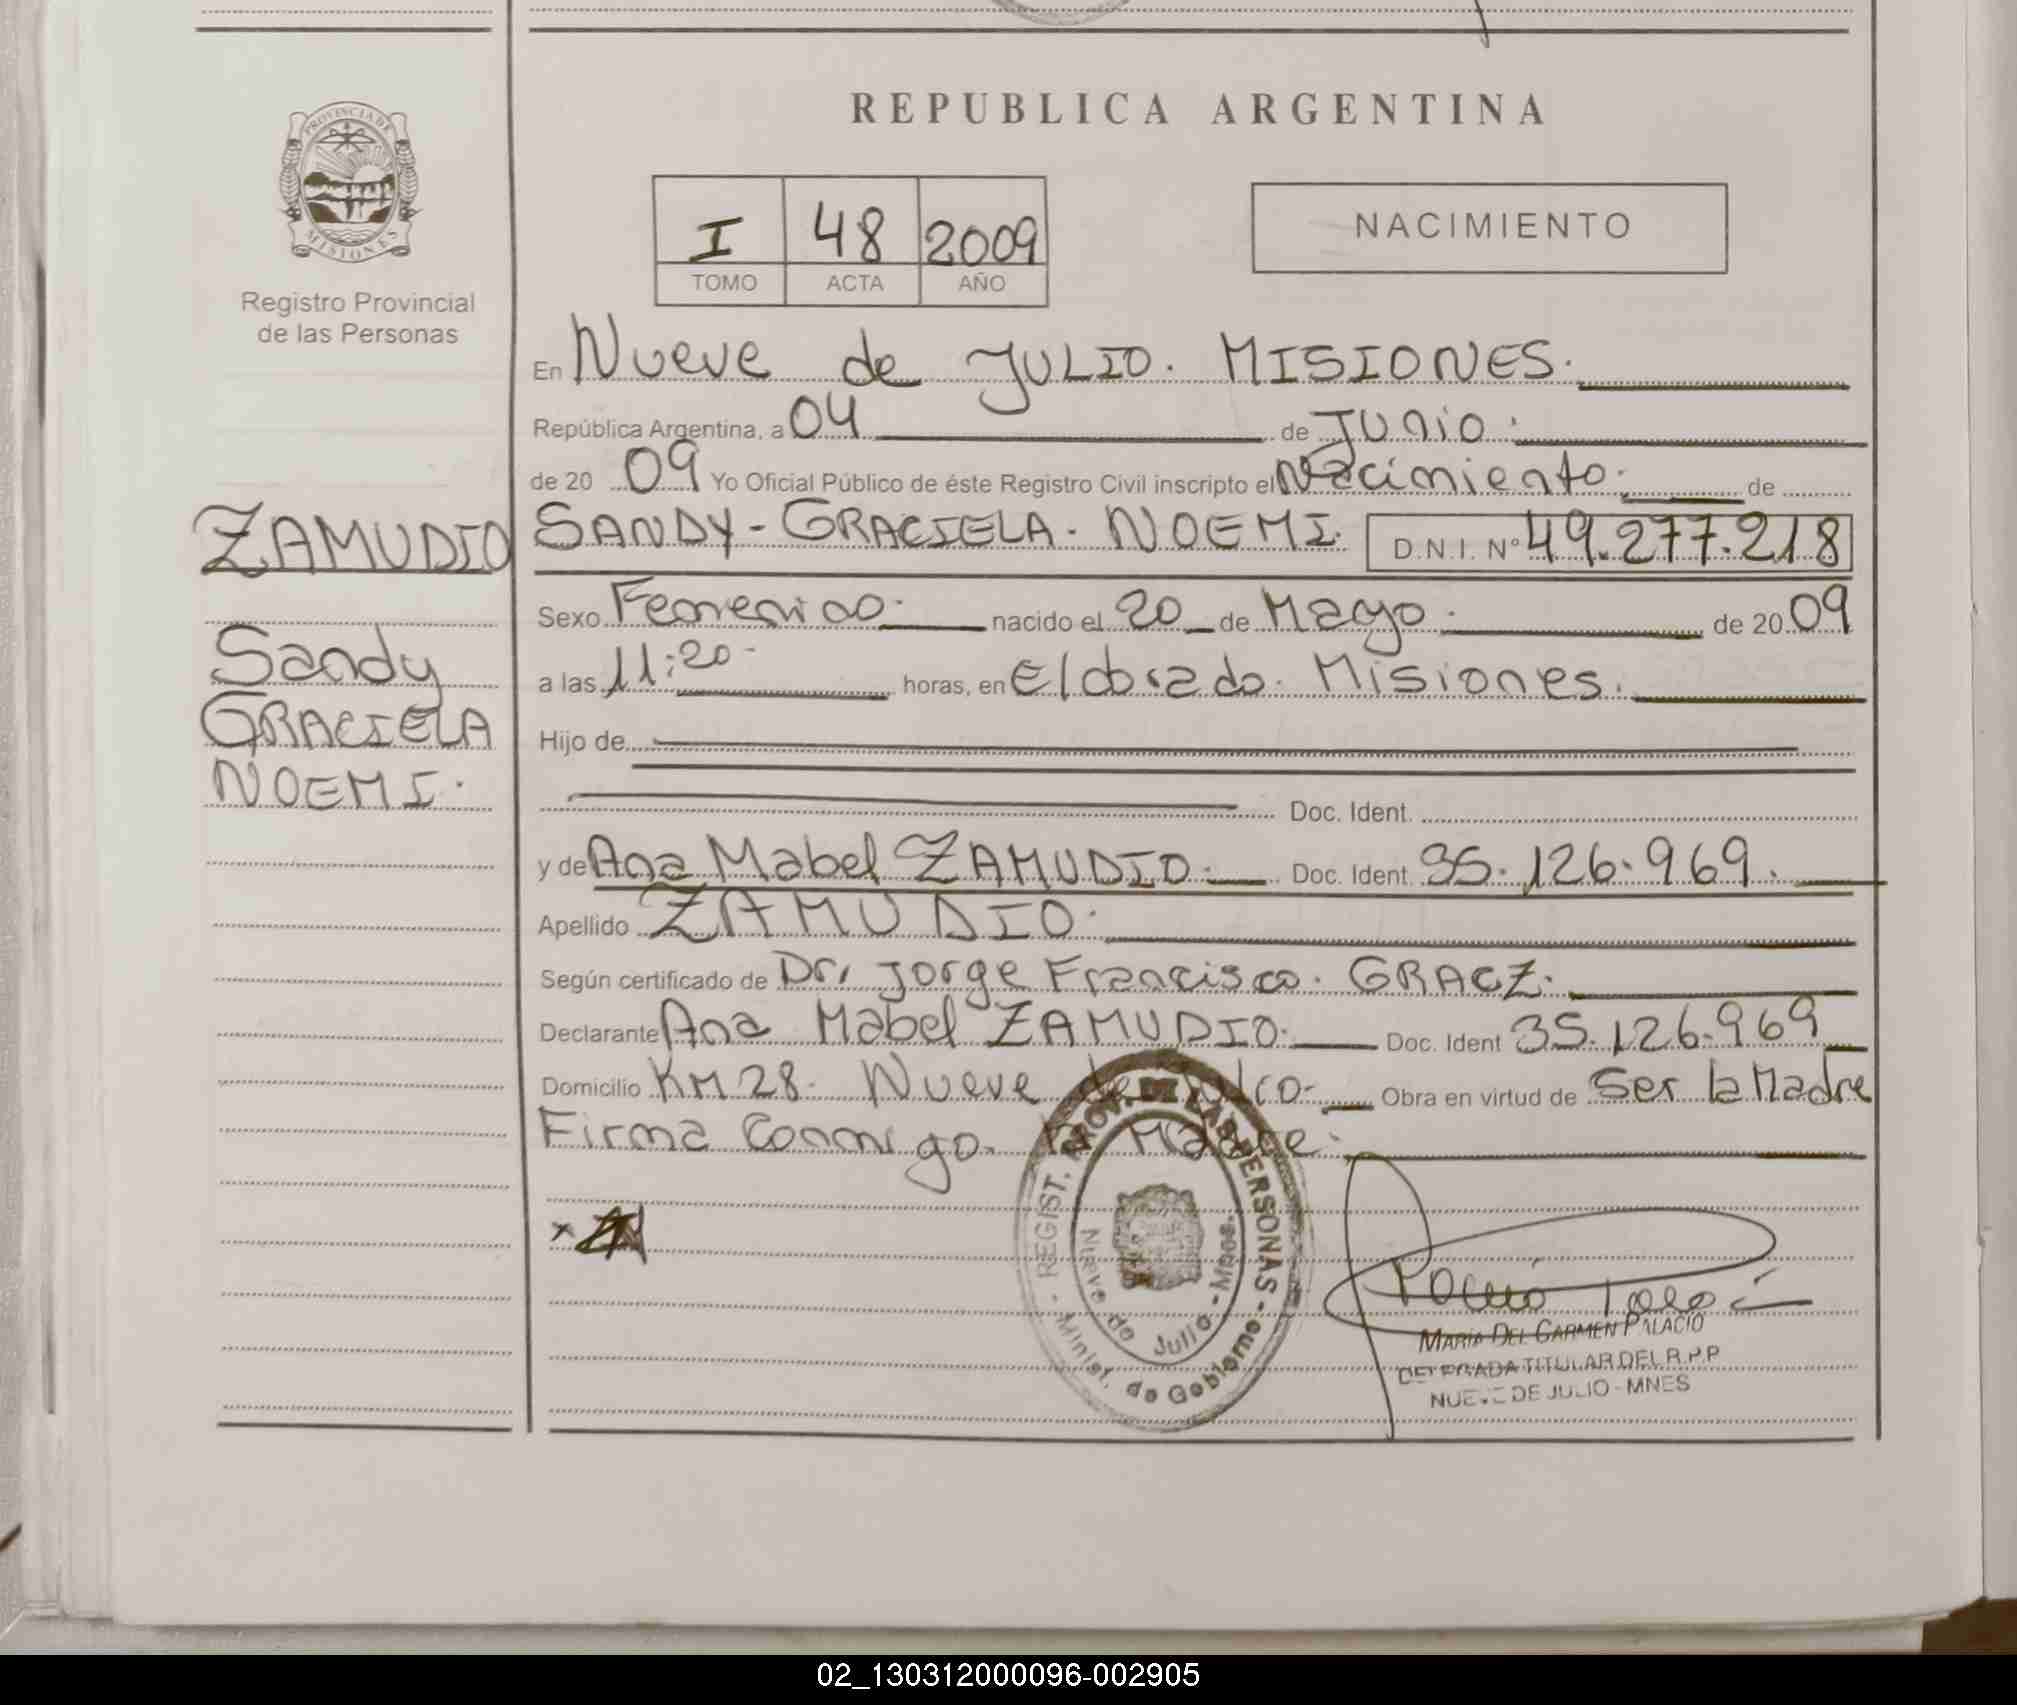 REPUBLICA ARGENTINA
PROVINCIA DE MISIONES
Registro Provincial
de las Personas
I 48 2009
TOMO ACTA AÑO
NACIMIENTO
En Nueve de JULIO. MISIONES.
República Argentina, a 04 de Junio.
de 20 09 Yo Oficial Público de éste Registro Civil inscripto el Nacimiento. de
ZAMUDIO
SANDY - GRACIELA - NOEMI. D.N.I. Nº 49.277.218
Sandy
GRACIELA
NOEMI.
Sexo Femenino. nacido el 20 de Mayo. de 20 09
a las 11:20 horas, en Eldorado. Misiones.
Hijo de
Doc. Ident.
y de Ana Mabel ZAMUDIO. Doc. Ident. 35.126.969.
Apellido ZAMUDIO.
Según certificado de Dr. Jorge Francisco. GRACZ.
Declarante Ana Mabel ZAMUDIO. Doc. Ident 35.126.969
Domicilio KM 28. Nueve de Julio. Obra en virtud de Ser la Madre
Firma Conmigo. la Madre.
REGIST. PROV. DE LAS PERSONAS
Minist. de Gobierno
Nueve de Julio - Mnes.
MARIA DEL CARMEN PALACIO
DELEGADA TITULAR DEL R.P.P
NUEVE DE JULIO - MNES
02_130312000096-002905